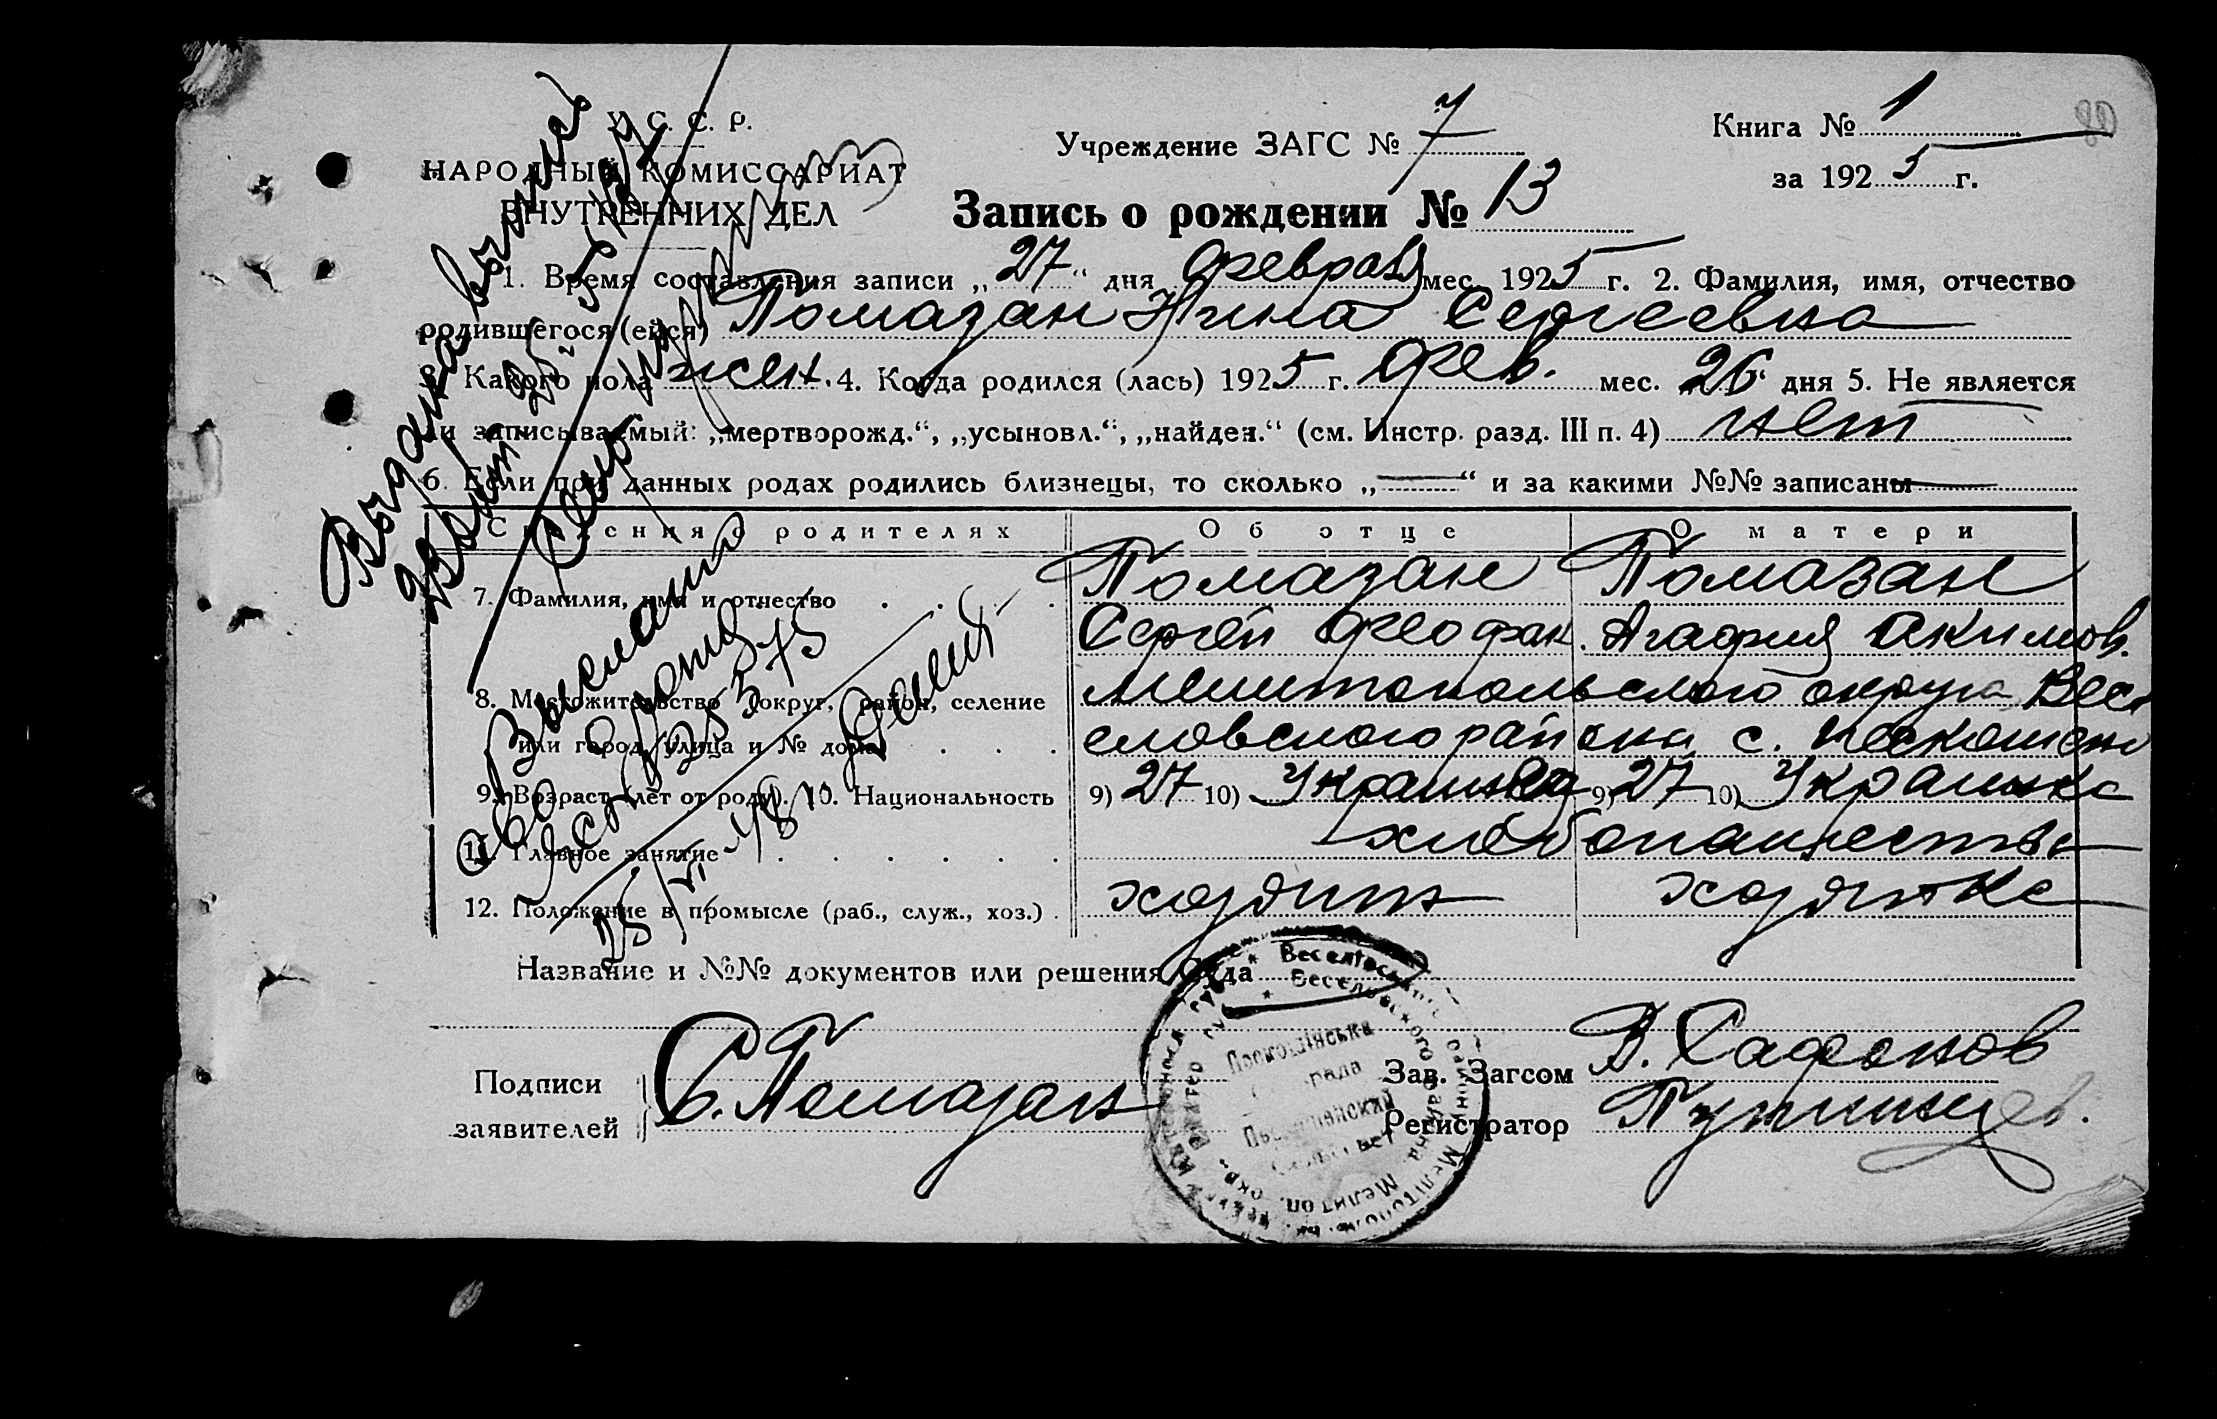 У. С. С. Р.
НАРОДНЫЙ КОМИССАРИАТ
ВНУТРЕННИХ ДЕЛ
Учреждение ЗАГС № 7
Книга № 1
за 1925 г.
Запись о рождении № 13
1. Время составления записи „27“ дня февраля мес. 1925 г. 2. Фамилия, имя, отчество
родившегося (ейся) Помазан Нина Сергеевна
3. Какого пола жен. 4. Когда родился (лась) 1925 г. фев. мес. „26“ дня 5. Не является
ли записываемый: „мертворожд.“, „усыновл.“, „найден.“ (см. Инстр. разд. III п. 4) нет
6. Если при данных родах родились близнецы, то сколько „—“ и за какими №№ записаны —
Сведения о родителях Об отце О матери
7. Фамилия, имя и отчество Помазан Помазан
Сергей Феофан. Агафия Акимов.
8. Местожительство (округ, район, селение Мелитопольского округа Весе
или город, улица и № дома) еловского района с.
9. Возраст (лет от роду). 10. Национальность 9) 27 10) 9) 27 10) Украинка
11. Главное занятие хлебопашество
12. Положение в промысле (раб., служ., хоз.) хозяин хозяйка
Название и №№ документов или решения Суда
Подписи
заявителей С. Помазан
Зав. Загсом В. Сафонов
Регистратор
Выдана
Выслано